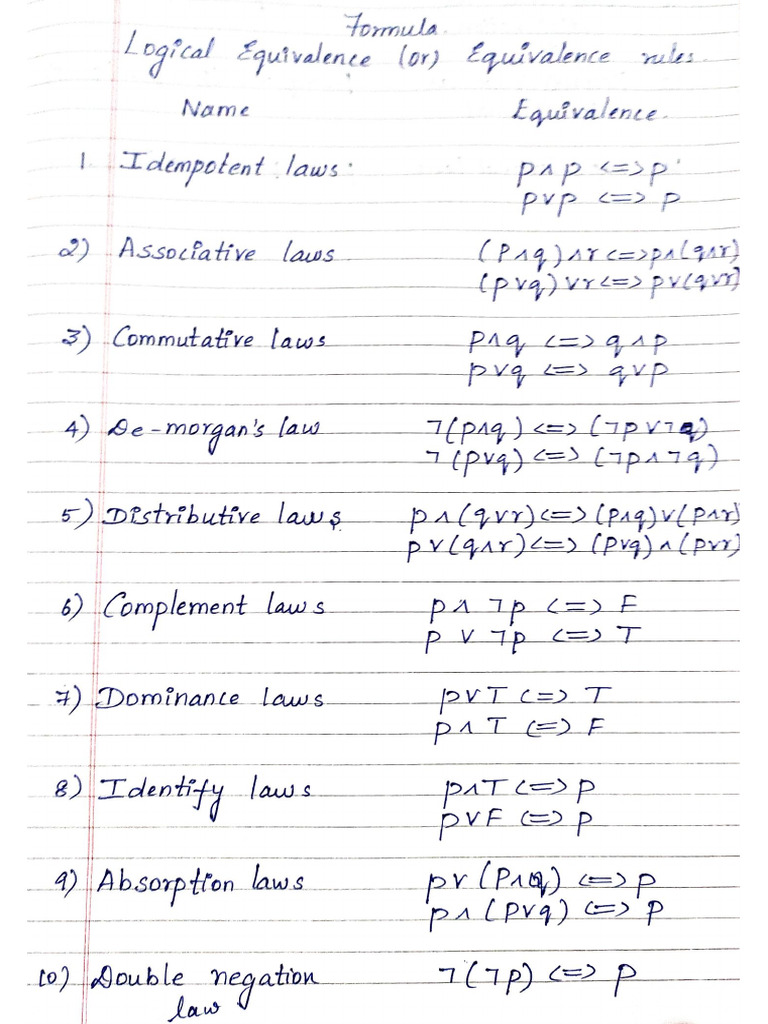 Formula.
Logical Equivalence (or) Equivalence rules.
Name Equivalence.
1 Idempotent laws. p∧p <=> p
p∨p <=> p
2) Associative laws (p∧q)∧r <=> p∧(q∧r)
(p∨q)∨r <=> p∨(q∨r)
3) Commutative laws p∧q <=> q∧p
p∨q <=> q∨p
4) De-morgan's law ¬(p∧q) <=> (¬p∨¬q)
¬(p∨q) <=> (¬p∧¬q)
5) Distributive laws p∧(q∨r) <=> (p∧q)∨(p∧r)
p∨(q∧r) <=> (p∨q)∧(p∨r)
6) Complement laws p∧¬p <=> F
p∨¬p <=> T
7) Dominance laws p∨T <=> T
p∧T <=> F
8) Identify laws p∧T <=> p
p∨F <=> p
9) Absorption laws p∨(p∧q) <=> p
p∧(p∨q) <=> p
10) Double negation ¬(¬p) <=> p
law